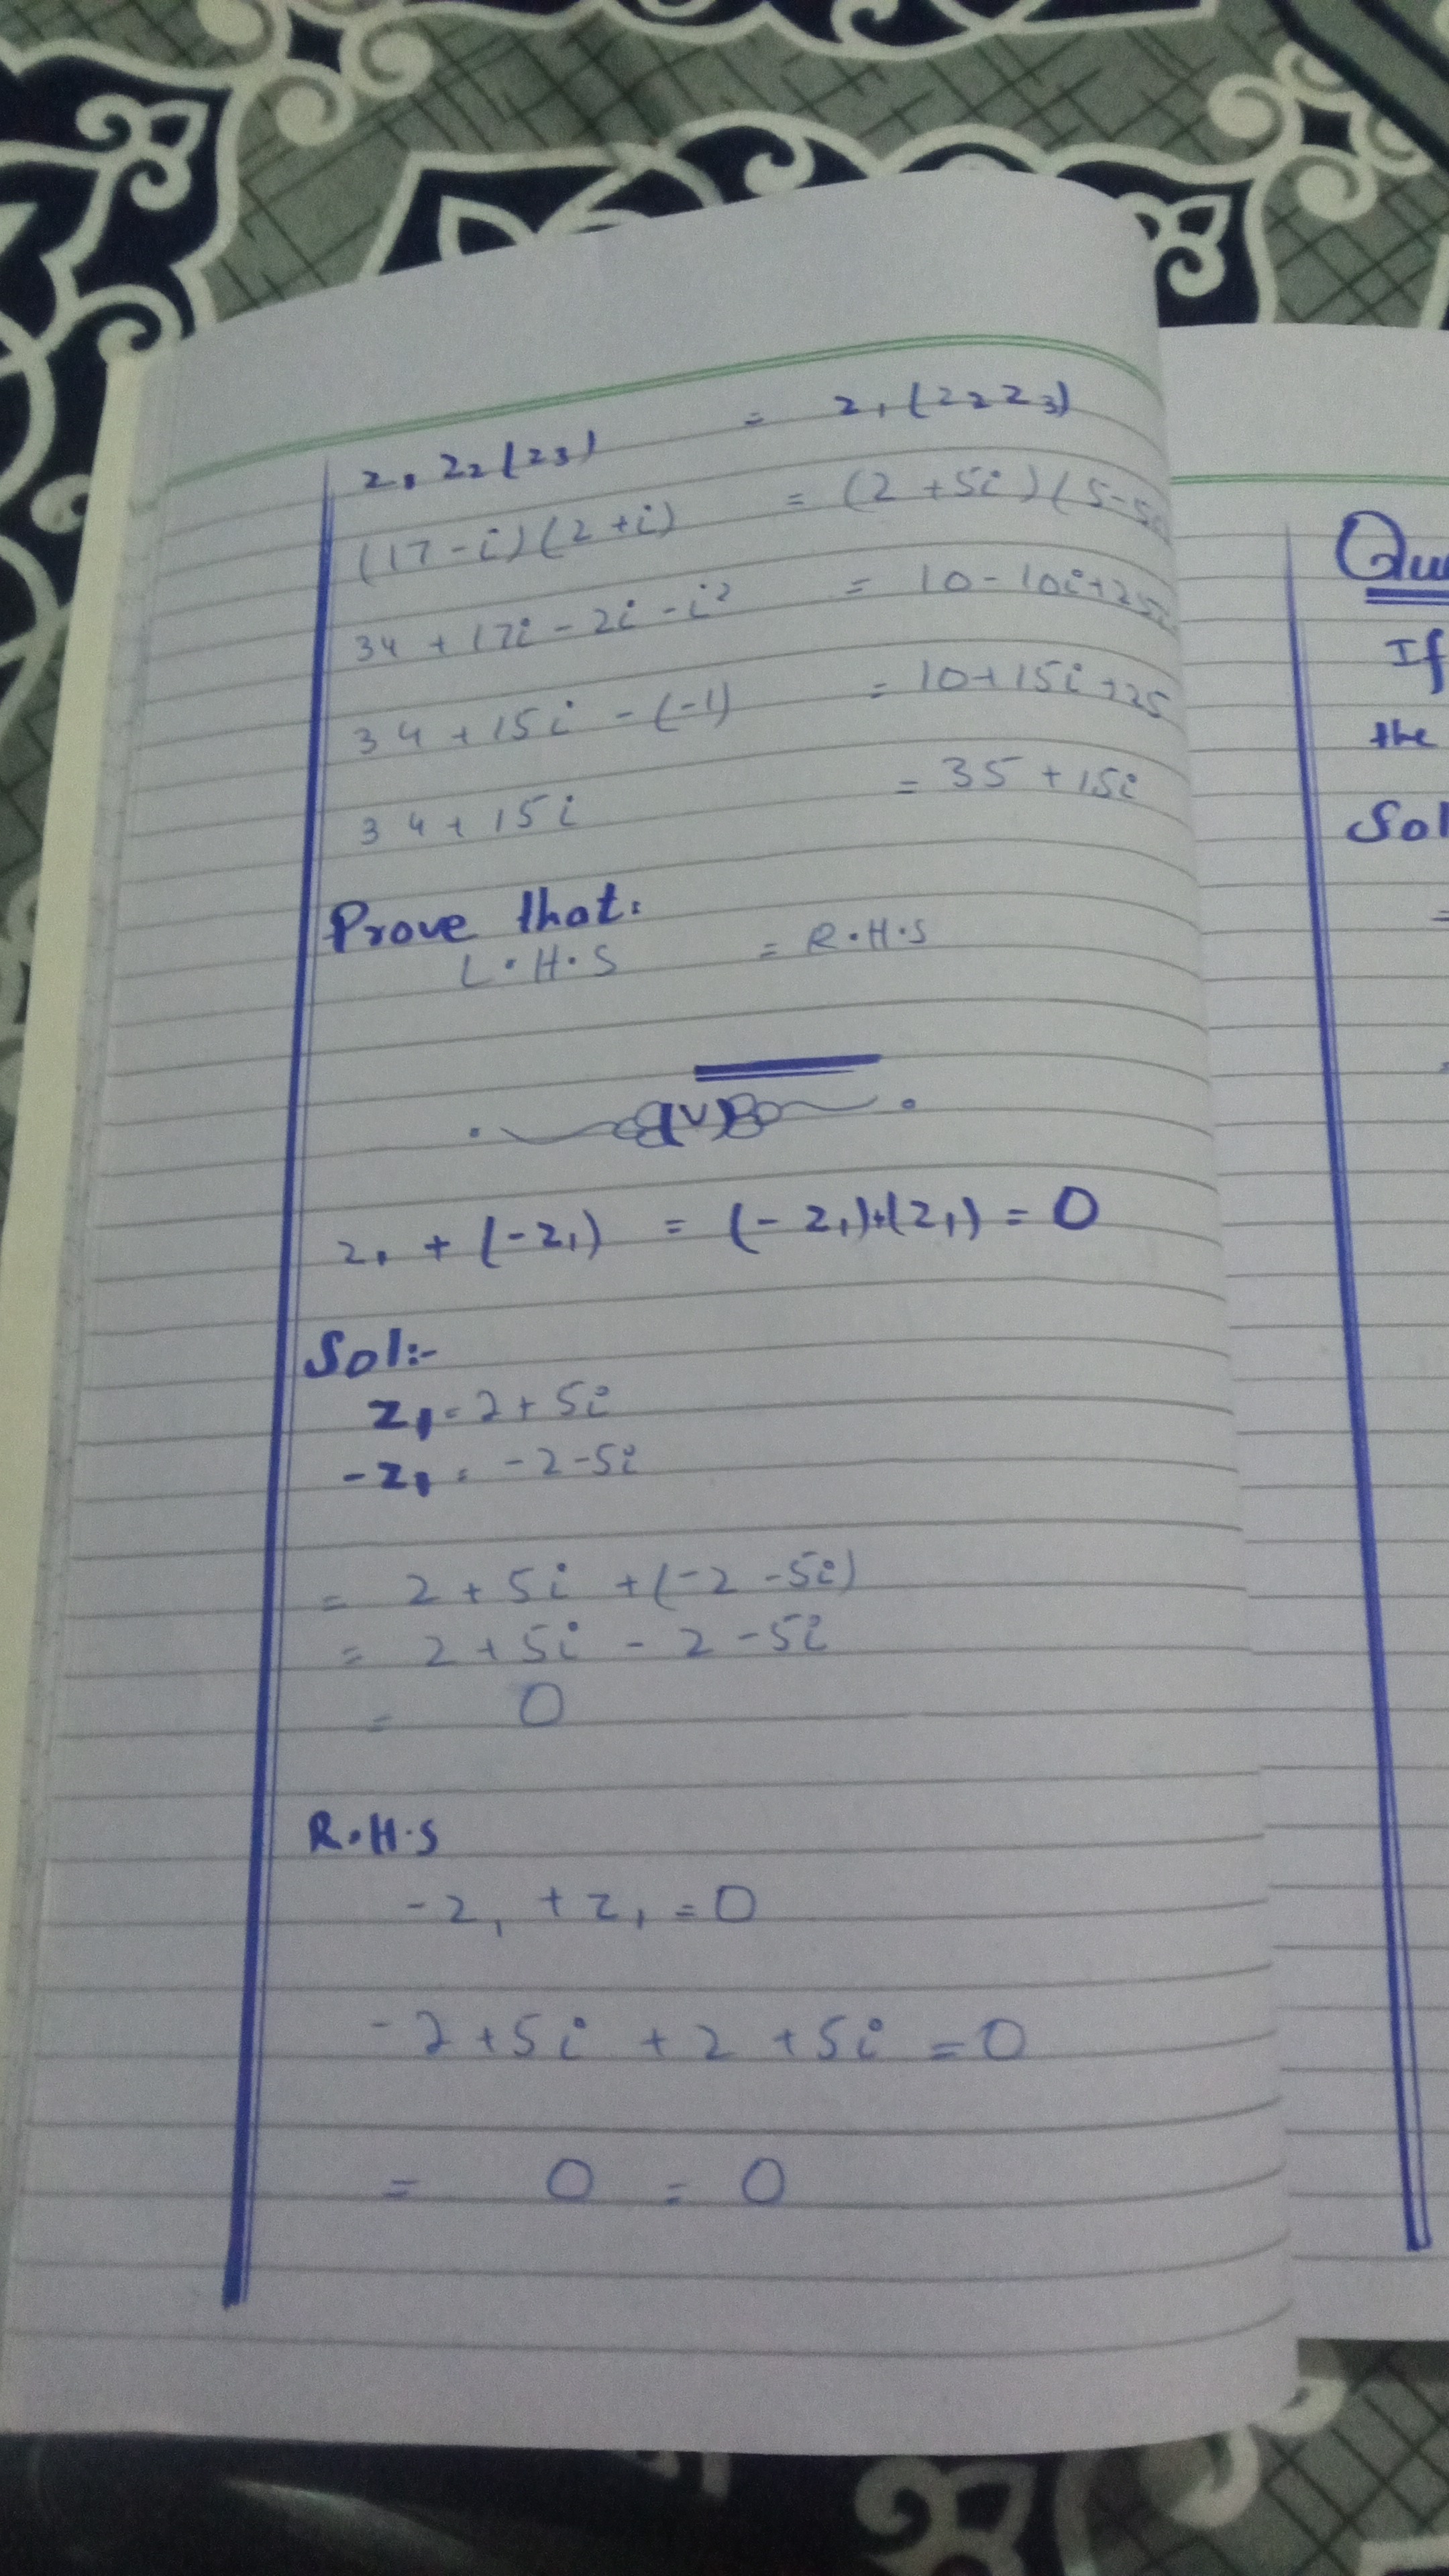 z₁ z₂(z₃) = z₁(z₂z₃)
(17-i)(2+i) = (2+5i)(5-5
34+17i-2i-i² = 10-10i+25i
34+15i-(-1) = 10+15i+25
34+15i = 35+15i
Prove that:
L.H.S = R.H.S
z₁ + (-z₁) = (-z₁)+(z₁) = 0
Sol:-
z₁ = 2+5i
-z₁ = -2-5i
= 2+5i+(-2-5i)
= 2+5i-2-5i
= 0
R.H.S
-z₁ + z₁ = 0
-2+5i+2+5i = 0
= 0 = 0
Qu
If
the
Sol
=